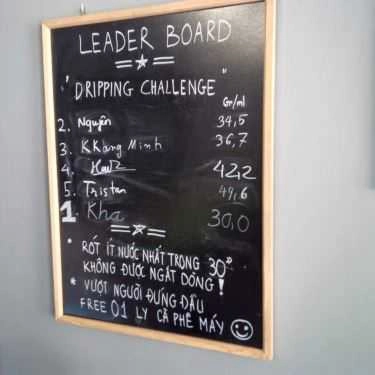 LEADER BOARD
" DRIPPING CHALLENGE "
Gr/ml
2. Nguyên 34,5
3. KKang Minh 36,7
4. 42,2
5. Tristan 49,6
1. Kha 30,0
* RÓT ÍT NƯỚC NHẤT TRONG 30"
KHÔNG ĐƯỢC NGẮT DÒNG!
* VƯỢT NGƯỜI ĐỨNG ĐẦU
FREE 01 LY CÀ PHÊ MÁY